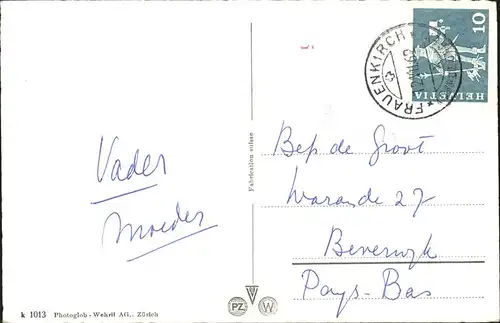 10
HELVETIA
FRAUENKIRCH
Vader
Moeder
Bep de Groot
Warande 27
Beverwijk
Pays-Bas
Fabrication suisse
k 1013 Photoglob-Wehrli AG., Zürich
PZ W